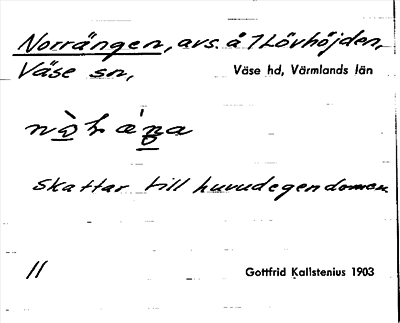 Norrängen, avs. å 7 Lövhöjden,
Väse sn, Väse hd, Värmlands län
skattar till huvudegendomen
11 Gottfrid Kallstenius 1903